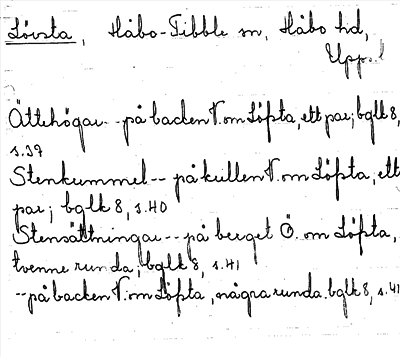 Lövsta, Håbo-Tibble sn, Håbo hd,
Uppl
Ättehögar -- på backen V. om Löfsta, ett par; bglk 8,
s. 39
Stenkummel -- på kullen V. om Löfsta, ett
par; bglk 8, s. 40
Stensättningar -- på berget Ö. om Löfsta,
tvenne runda; bglk 8, s. 41
-- på backen V. om Löfsta, några runda. bglk 8, s. 41